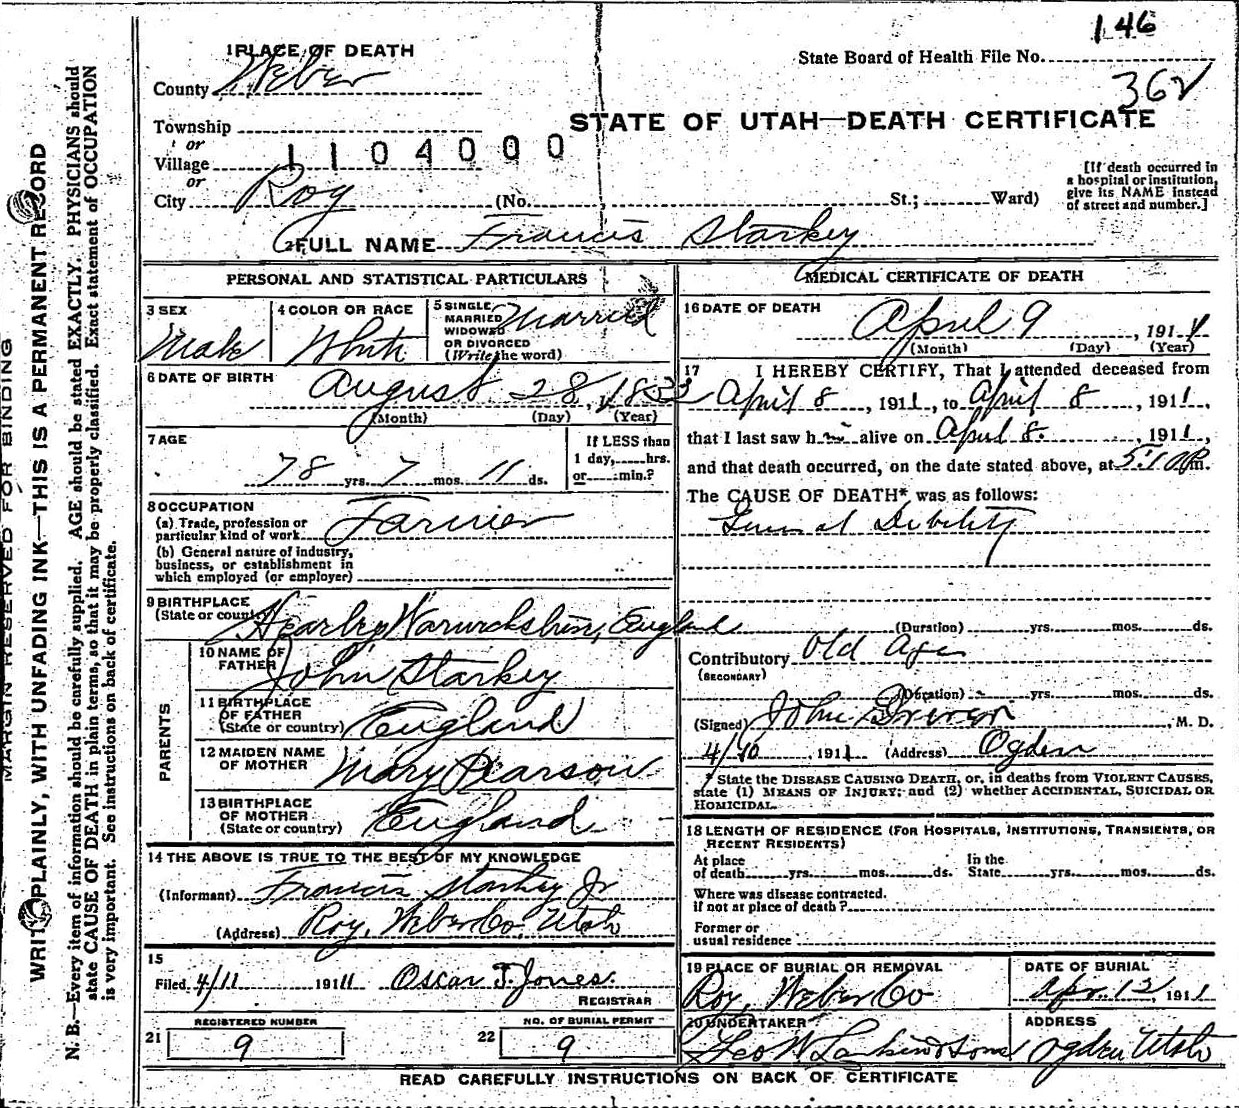 146
State Board of Health File No.
362
1 PLACE OF DEATH
County Weber
Township
or
Village
1104000
or
City Roy (No. St.; Ward)
STATE OF UTAH—DEATH CERTIFICATE
[If death occurred in
a hospital or institution,
give its NAME instead
of street and number.]
2 FULL NAME Francis Starkey
PERSONAL AND STATISTICAL PARTICULARS
3 SEX
Male
4 COLOR OR RACE
White
5 SINGLE
MARRIED
WIDOWED
OR DIVORCED
(Write the word)
Married
6 DATE OF BIRTH
August 28, 1832
(Month) (Day) (Year)
7 AGE
78 yrs. 7 mos. 11 ds.
If LESS than
1 day, hrs.
or min.?
8 OCCUPATION
(a) Trade, profession or
particular kind of work Farmer
(b) General nature of industry,
business, or establishment in
which employed (or employer)
9 BIRTHPLACE
(State or country) Warwickshire, England
PARENTS
10 NAME OF
FATHER John Starkey
11 BIRTHPLACE
OF FATHER
(State or country) England
12 MAIDEN NAME
OF MOTHER Mary Pearson
13 BIRTHPLACE
OF MOTHER
(State or country) England
14 THE ABOVE IS TRUE TO THE BEST OF MY KNOWLEDGE
(Informant) Francis Starkey Jr
(Address) Roy, Weber Co, Utah
15
Filed 4/11 1911 Oscar T. Jones.
REGISTRAR
REGISTERED NUMBER
21 9
NO. OF BURIAL PERMIT
22 9
MEDICAL CERTIFICATE OF DEATH
16 DATE OF DEATH
April 9, 1911
(Month) (Day) (Year)
17 I HEREBY CERTIFY, That I attended deceased from
April 8, 1911, to April 8, 1911,
that I last saw him alive on April 8., 1911,
and that death occurred, on the date stated above, at 5:10 m.
The CAUSE OF DEATH* was as follows:
General Debility
(Duration) yrs. mos. ds.
Contributory Old Age
(SECONDARY)
(Duration) yrs. mos. ds.
(Signed) John, M. D.
4/10, 1911 (Address) Ogden
* State the DISEASE CAUSING DEATH, or, in deaths from VIOLENT CAUSES,
state (1) MEANS OF INJURY; and (2) whether ACCIDENTAL, SUICIDAL OR
HOMICIDAL.
18 LENGTH OF RESIDENCE (FOR HOSPITALS, INSTITUTIONS, TRANSIENTS, OR
RECENT RESIDENTS)
At place
of death yrs. mos. ds.
In the
State yrs. mos. ds.
Where was disease contracted.
if not at place of death?
Former or
usual residence
19 PLACE OF BURIAL OR REMOVAL
Roy, Weber Co
DATE OF BURIAL
Apr. 12, 1911
20 UNDERTAKER
Geo W Larkin & Sons
ADDRESS
Ogden Utah
READ CAREFULLY INSTRUCTIONS ON BACK OF CERTIFICATE
MARGIN RESERVED FOR BINDING
WRITE PLAINLY, WITH UNFADING INK—THIS IS A PERMANENT RECORD
N. B.—Every item of information should be carefully supplied. AGE should be stated EXACTLY. PHYSICIANS should
state CAUSE OF DEATH in plain terms, so that it may be properly classified. Exact statement of OCCUPATION
is very important. See instructions on back of certificate.